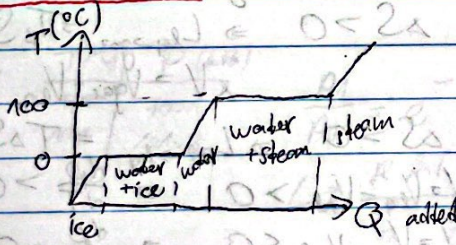 T (°C)
100
0
water + ice
water
water + steam
steam
ice
Q added